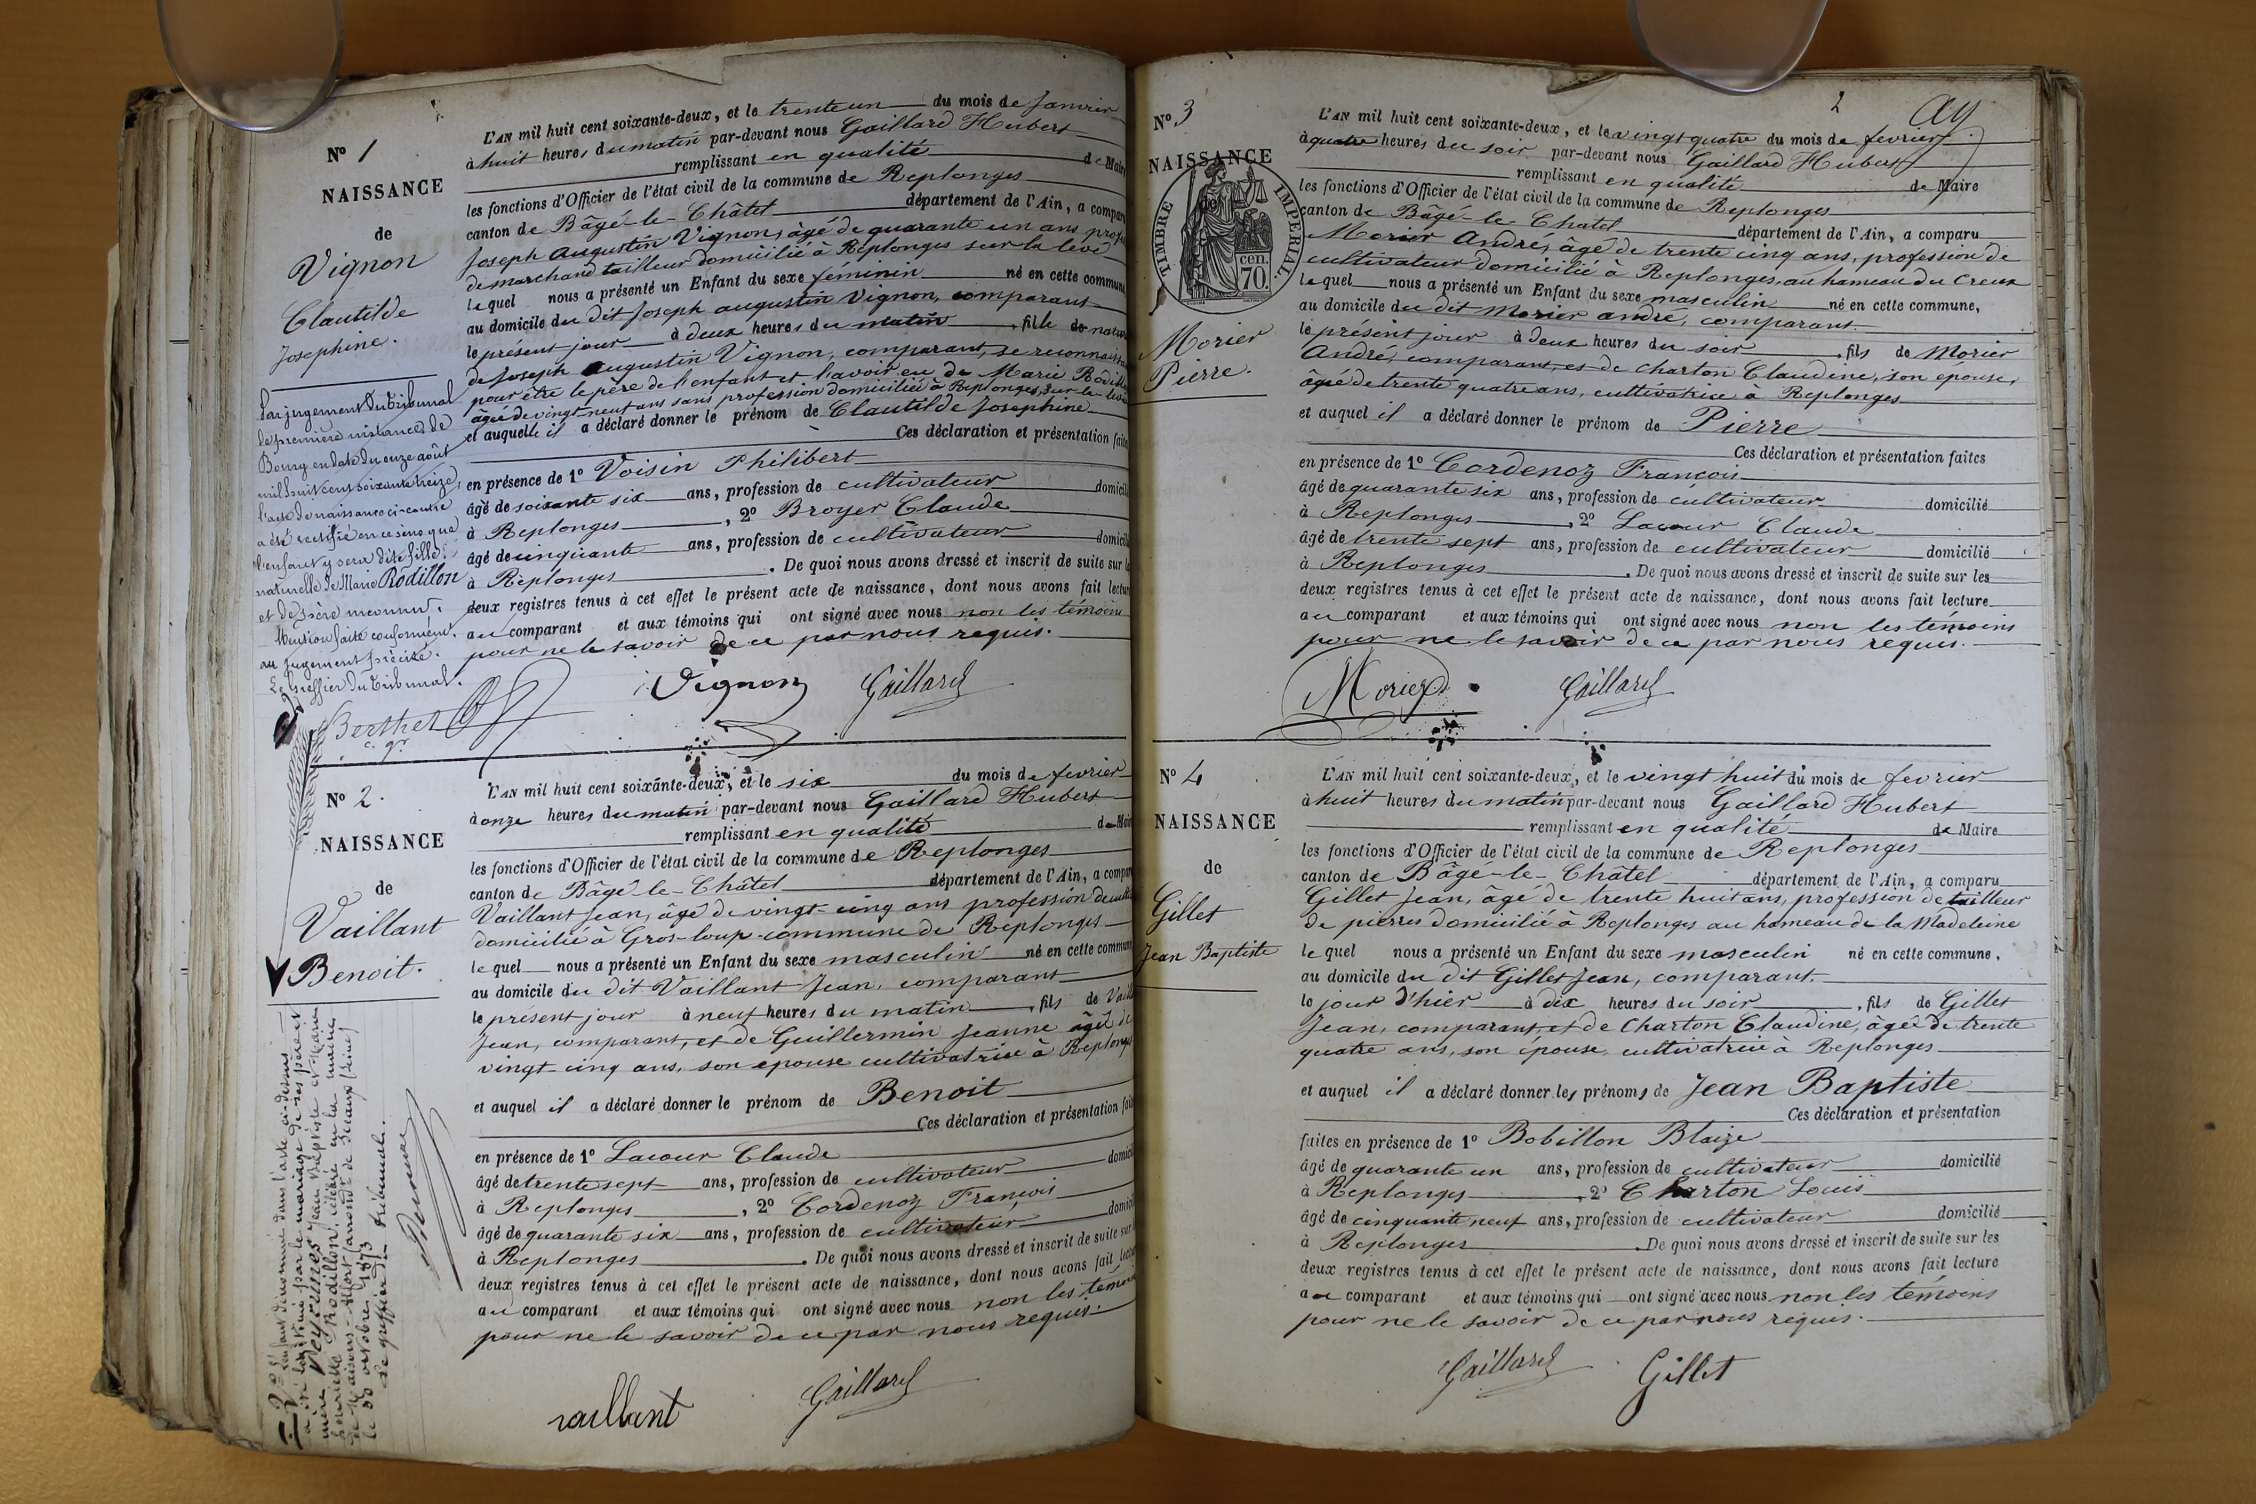 N° 1
NAISSANCE
de
Vignon
Clautilde
Josephine.
Par jugement du tribunal
de première instance de
Bourg en date du onze août
mil huit cent soixante treize,
l'acte de naissance ci-contre
a été rectifié en ce sens que
l'enfant y sera dite fille
naturelle de Marie Rodillon
et de père inconnu.
Mention faite conformément
au jugement précité.
Le Greffier du tribunal.
Berthet
c. gr
L'AN mil huit cent soixante-deux, et le trente un du mois de Janvier
à huit heures du matin par-devant nous Gaillard Hubert
remplissant en qualité de Maire
les fonctions d'Officier de l'état civil de la commune de Replonges
canton de Bâgé-le-Châtel département de l'Ain, a compar
Joseph Augustin Vignon, âgé de quarante un ans profe
de marchand tailleur domicilié à Replonges sur la levé
lequel nous a présenté un Enfant du sexe feminin né en cette commune
au domicile du dit Joseph augustin Vignon, comparant
le présent jour à deux heures du matin, fille de natur
de Joseph Augustin Vignon, comparant, se reconnaiss
pour être le père de l'enfant et l'avoir eu de Marie Rodill
âgée de vingt-neuf ans sans profession domiciliée à Replonges, sur-la-levé
et auquelle il a déclaré donner le prénom de Clautilde Josephine
Ces déclaration et présentation faites
en présence de 1° Voisin Philibert
âgé de soixante six ans, profession de cultivateur domicil
à Replonges, 2° Broyer Claude
âgé de cinquante ans, profession de cultivateur domicil
à Replonges. De quoi nous avons dressé et inscrit de suite sur l
deux registres tenus à cet effet le présent acte de naissance, dont nous avons fait lectur
au comparant et aux témoins qui ont signé avec nous non les témoins
pour ne le savoir de ce par nous requis.
Vignon Gaillard
N° 2.
NAISSANCE
de
Vaillant
Benoit.
2° L'enfant dénommé dans l'acte ci-dessus
a été légitimé par le mariage de ses père et
mère Neyrures Jean Baptiste et Marie
henriette Rodillon, célébré en la mairie
de Maisons-Alfort (arrond. de Sceaux (Seine)
le 30 octobre 1873
Le greffier du tribunal.
L'AN mil huit cent soixante-deux, et le six du mois de fevrier
à onze heures du matin par-devant nous Gaillard Hubert
remplissant en qualité de Mair
les fonctions d'Officier de l'état civil de la commune de Replonges
canton de Bâgé-le-Châtel département de l'Ain, a compar
Vaillant Jean, âgé de vingt-cinq ans profession de cultiv
domicilié à Gros-loup commune de Replonges
lequel nous a présenté un Enfant du sexe masculin né en cette commun
au domicile du dit Vaillant Jean, comparant
le présent jour à neuf heures du matin, fils de Vaill
Jean, comparant, et de Guillermin Jeanne âgée de
vingt-cinq ans, son epouse cultivatrice à Replonges
et auquel il a déclaré donner le prénom de Benoit
Ces déclaration et présentation fait
en présence de 1° Lacour Claude
âgé de trente sept ans, profession de cultivateur domici
à Replonges, 2° Cordenoz François
âgé de quarante six ans, profession de cultivateur domici
à Replonges. De quoi nous avons dressé et inscrit de suite sur
deux registres tenus à cet effet le présent acte de naissance, dont nous avons fait lectu
au comparant et aux témoins qui ont signé avec nous non les témoins
pour ne le savoir de ce par nous requis.
vaillant Gaillard
2
N° 3
NAISSANCE
de
TIMBRE IMPERIAL
70. cen.
Morier
Pierre.
L'AN mil huit cent soixante-deux, et le vingt quatre du mois de fevrier
à quatre heures du soir par-devant nous Gaillard Hubert
remplissant en qualité de Maire
les fonctions d'Officier de l'état civil de la commune de Replonges
canton de Bâgé-le-Chatel département de l'Ain, a comparu
Morier André, âgé de trente cinq ans, profession de
cultivateur domicilié à Replonges, au hameau du Creux
lequel nous a présenté un Enfant du sexe masculin né en cette commune,
au domicile du dit Morier andré, comparant
le présent jour à deux heures du soir, fils de Morier
André, comparant, et de Charton Claudine, son épouse,
âgée de trente quatre ans, cultivatrice à Replonges
et auquel il a déclaré donner le prénom de Pierre
Ces déclaration et présentation faites
en présence de 1° Cordenoz François
âgé de quarante six ans, profession de cultivateur domicilié
à Replonges, 2° Lacour Claude
âgé de trente sept ans, profession de cultivateur domicilié
à Replonges. De quoi nous avons dressé et inscrit de suite sur les
deux registres tenus à cet effet le présent acte de naissance, dont nous avons fait lecture
au comparant et aux témoins qui ont signé avec nous non les témoins
pour ne le savoir de ce par nous requis.
Morier Gaillard
N° 4
NAISSANCE
de
Gillet
Jean Baptiste
L'AN mil huit cent soixante-deux, et le vingt huit du mois de fevrier
à huit heures du matin par-devant nous Gaillard Hubert
remplissant en qualité de Maire
les fonctions d'Officier de l'état civil de la commune de Replonges
canton de Bâgé-le-Châtel département de l'Ain, a comparu
Gillet Jean, âgé de trente huit ans, profession de tailleur
de pierres domicilié à Replonges au hameau de la Madeleine
lequel nous a présenté un Enfant du sexe masculin né en cette commune,
au domicile du dit Gillet Jean, comparant.
le jour d'hier à dix heures du soir, fils de Gillet
Jean, comparant, et de Charton Claudine, âgée de trente
quatre ans, son épouse, cultivatrice à Replonges
et auquel il a déclaré donner les prénoms de Jean Baptiste
Ces déclaration et présentation
faites en présence de 1° Bobillon Blaize
âgé de quarante un ans, profession de cultivateur domicilié
à Replonges, 2° Charton Louis
âgé de cinquante neuf ans, profession de cultivateur domicilié
à Replonges. De quoi nous avons dressé et inscrit de suite sur les
deux registres tenus à cet effet le présent acte de naissance, dont nous avons fait lecture
au comparant et aux témoins qui ont signé avec nous non les témoins
pour ne le savoir de ce par nous requis.
Gaillard Gillet